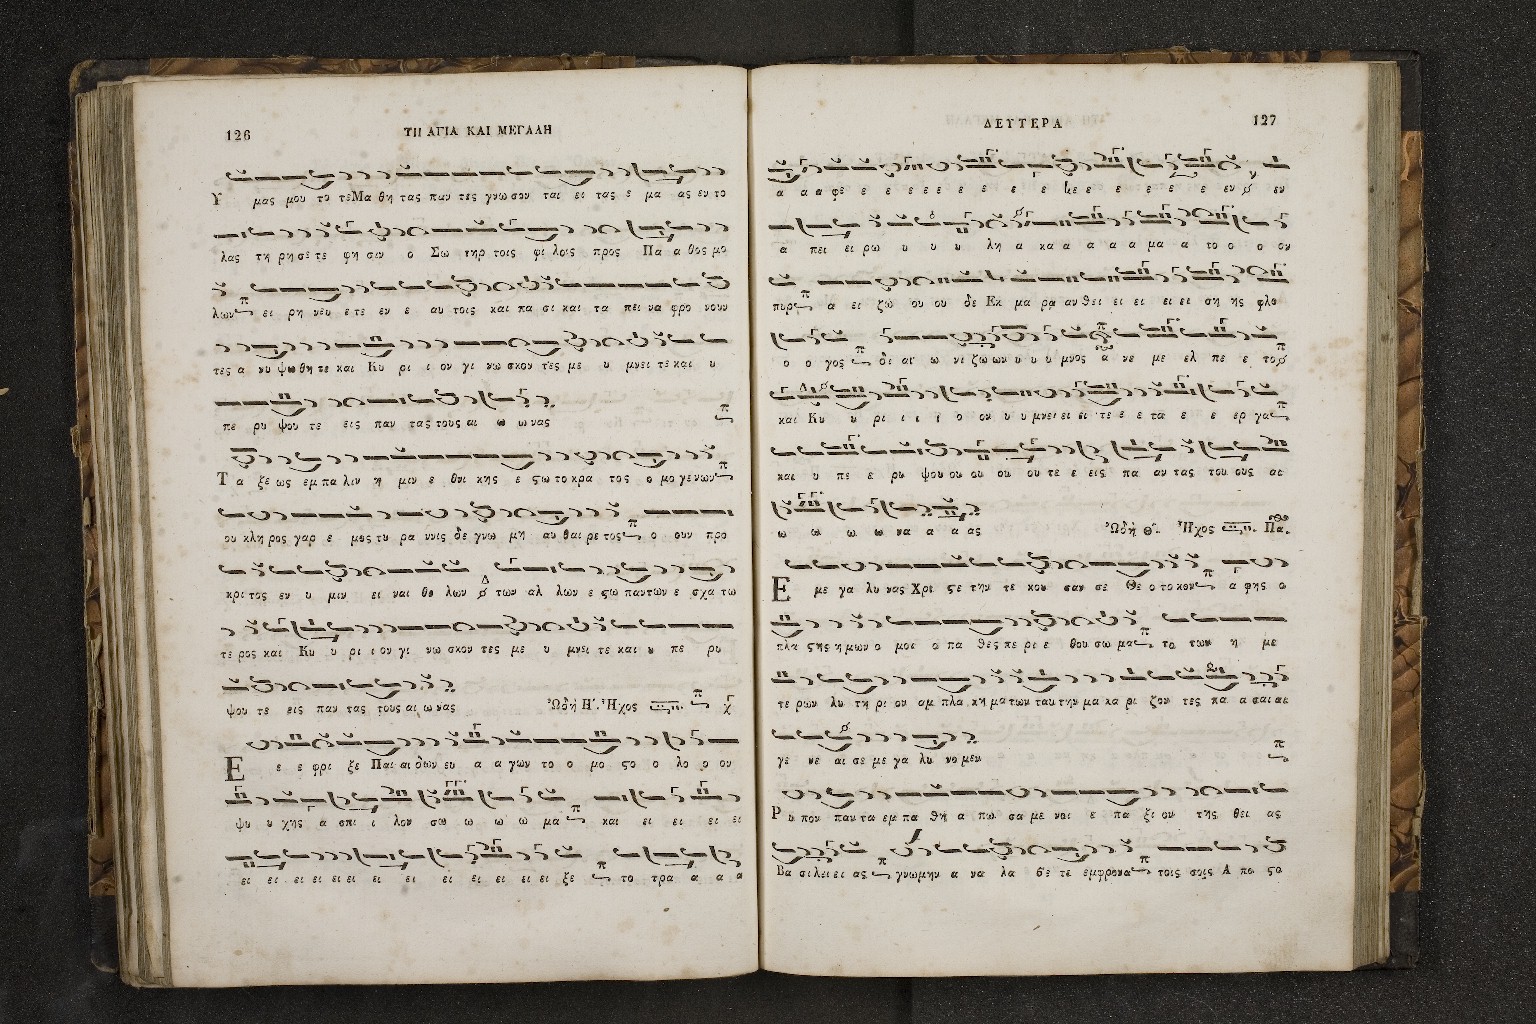 126
ΤΗ ΑΓΙΑ ΚΑΙ ΜΕΓΑΛΗ
Υ μας μου το τε Μα θη τας παν τες γνω σον ται ει τας ε μα ας εν το
λας τη ρη σε τε φη σιν ο Σω τηρ τοις φι λοις προς Πα α θος μο
λων ει ρη νευ ε τε εν ε αυ τοις και πα σι και τα πει να φρο νουν
τες α νυ ψω θη τε και Κυ ρι ι ον γι νω σκον τες με υ μνει τε και υ
πε ρυ ψου τε εις παν τας τους αι ω ω νας
Τα ξε ως εμ πα λιν η μιν ε θνι κης ε ςω το κρα τος ο μο γε νων
ου κλη ρος γαρ ε μος τυ ρα ννις δε γνω μη αυ θαι ρε τος ο ουν προ
κρι τος εν υ μιν ει ναι θε λων των αλ λων ε ςω παντων ε σχα τω
τε ρος και Κυ υ ρι ι ον γι νω σκον τες με υ μνει τε και υ πε ρυ
ψου τε εις παν τας τους αι ω νας Ὠδὴ Η΄. Ἦχος
Ε ε ε φρι ξε Παι αι δων ευ α α γων το ο μο ςο ο λο ο ον
ψυ υ χης α σπι ι λον σω ω ω ω μα και ει ει ει ει
ει ει ει ει ει ει ει ει ει ει ει ει ει ξε το τρα α α α
ΔΕΥΤΕΡΑ
127
α α α φε ε ε ε ε ε ε ε ε ε ε ε ε ε ε ε εν εν
α πει ει ρω υ υ υ λη α κα α α α α μα α το ο ο ον
πυρ α ει ζω ου ου δε Εκ μα ρα αν θει ει ει ει ει ση ης φλο
ο ο γος δι αι ω νι ζω ων υ υ υ μνος α νε με ελ πε ε το
και Κυ υ ρι ι ι ι ο ον υ υ μνει ει ει τε ε ε τα ε ε ερ γα
και υ πε ε ρυ ψου ου ου ου ου τε ε εις πα αν τας του ους αι
ω ω ω ω να α α ας Ὠδὴ Θ΄. Ἦχος Πα.
Ε με γα λυ νας Χρι ςε την τε κου σαν σε Θε ο το κον α φης ο
πλα ςης η μων ο μοι ο πα θες πε ρι ε θου σω μα το των η με
τε ρων λυ τη ρι ον αμ πλα κη μα των ταυ την μα κα ρι ζον τες πα α σαι αι
γε νε αι σε με γα λυ νο μεν
Ρυ πον παν τα εμ πα θη α πω σα με νοι ε πα ξι ον της θει ας
Βα σι λει ει ας γνωμην α να λα βε τε εμφρονα τοις σοις Α πο ςο